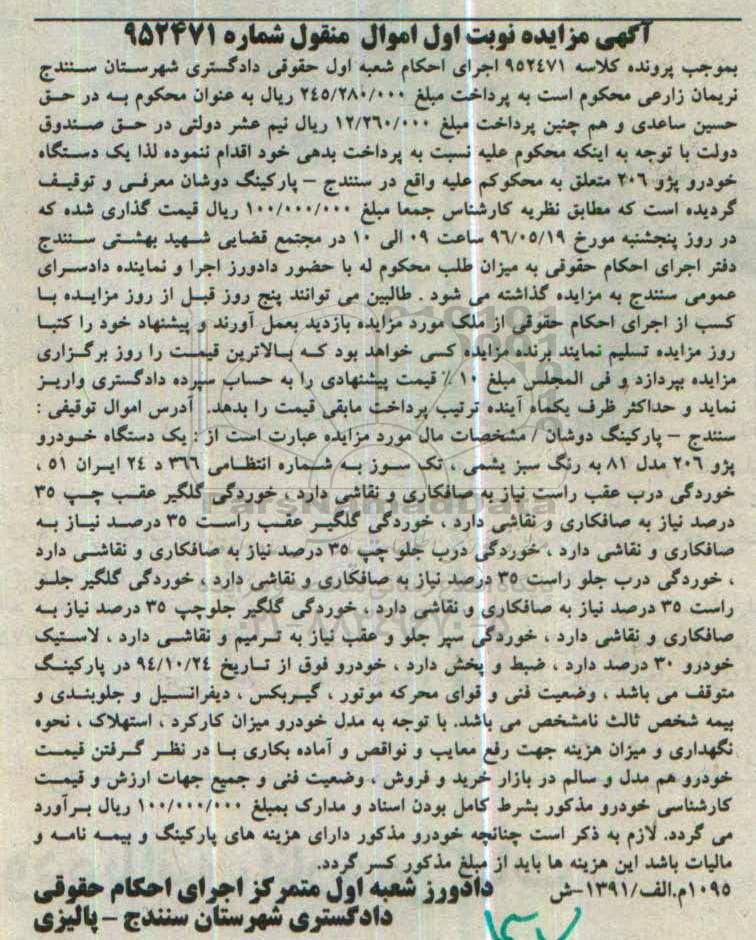 آگهی مزایده نوبت اول اموال منقول شماره ۹۵۲۴۷۱
بموجب پرونده کلاسه ۹۵۲٤۷۱ اجرای احکام شعبه اول حقوقی دادگستری شهرستان سنندج
نریمان زارعی محکوم است به پرداخت مبلغ ۲٤۵/۲۸۰/۰۰۰ ریال به عنوان محکوم به در حق
حسین ساعدی و هم چنین پرداخت مبلغ ۱۲/۲٦۰/۰۰۰ ریال نیم عشر دولتی در حق صندوق
دولت با توجه به اینکه محکوم علیه نسبت به پرداخت بدهی خود اقدام ننموده لذا یک دستگاه
خودرو پژو ۲۰٦ متعلق به محکوکم علیه واقع در سنندج – پارکینگ دوشان معرفی و توقیف
گردیده است که مطابق نظریه کارشناس جمعا مبلغ ۱۰۰/۰۰۰/۰۰۰ ریال قیمت گذاری شده که
در روز پنجشنبه مورخ ۹٦/۰۵/۱۹ ساعت ۰۹ الی ۱۰ در مجتمع قضایی شهید بهشتی سنندج
دفتر اجرای احکام حقوقی به میزان طلب محکوم له با حضور دادورز اجرا و نماینده دادسرای
عمومی سنندج به مزایده گذاشته می شود . طالبین می توانند پنج روز قبل از روز مزایده با
کسب از اجرای احکام حقوقی از ملک مورد مزایده بازدید بعمل آورند و پیشنهاد خود را کتبا
روز مزایده تسلیم نمایند برنده مزایده کسی خواهد بود که بالاترین قیمت را روز برگزاری
مزایده بپردازد و فی المجلس مبلغ ۱۰ ٪ قیمت پیشنهادی را به حساب سپرده دادگستری واریز
نماید و حداکثر ظرف یکماه آینده ترتیب پرداخت مابقی قیمت را بدهد. آدرس اموال توقیفی :
سنندج – پارکینگ دوشان / مشخصات مال مورد مزایده عبارت است از : یک دستگاه خودرو
پژو ۲۰٦ مدل ۸۱ به رنگ سبز یشمی ، تک سوز به شماره انتظامی ۳٦٦ د ۲٤ ایران ۵۱ ،
خوردگی درب عقب راست نیاز به صافکاری و نقاشی دارد ، خوردگی گلگیر عقب چپ ۳۵
درصد نیاز به صافکاری و نقاشی دارد ، خوردگی گلگیر عقب راست ۳۵ درصد نیاز به
صافکاری و نقاشی دارد ، خوردگی درب جلو چپ ۳۵ درصد نیاز به صافکاری و نقاشی دارد
، خوردگی درب جلو راست ۳۵ درصد نیاز به صافکاری و نقاشی دارد ، خوردگی گلگیر جلو
راست ۳۵ درصد نیاز به صافکاری و نقاشی دارد ، خوردگی گلگیر جلوچپ ۳۵ درصد نیاز به
صافکاری و نقاشی دارد ، خوردگی سپر جلو و عقب نیاز به ترمیم و نقاشی دارد ، لاستیک
خودرو ۳۰ درصد دارد ، ضبط و پخش دارد ، خودرو فوق از تاریخ ۹٤/۱۰/۲٤ در پارکینگ
متوقف می باشد ، وضعیت فنی و قوای محرکه موتور ، گیربکس ، دیفرانسیل و جلوبندی و
بیمه شخص ثالث نامشخص می باشد. با توجه به مدل خودرو میزان کارکرد ، استهلاک ، نحوه
نگهداری و میزان هزینه جهت رفع معایب و نواقص و آماده بکاری با در نظر گرفتن قیمت
خودرو هم مدل و سالم در بازار خرید و فروش ، وضعیت فنی و جمیع جهات ارزش و قیمت
کارشناسی خودرو مذکور بشرط کامل بودن اسناد و مدارک بمبلغ ۱۰۰/۰۰۰/۰۰۰ ریال برآورد
می گردد. لازم به ذکر است چنانچه خودرو مذکور دارای هزینه های پارکینگ و بیمه نامه و
مالیات باشد این هزینه ها باید از مبلغ مذکور کسر گردد.
۱۰۹۵م.الف/۱۳۹۱-ش
دادورز شعبه اول متمرکز اجرای احکام حقوقی
دادگستری شهرستان سنندج – پالیزی
ParsNamadData